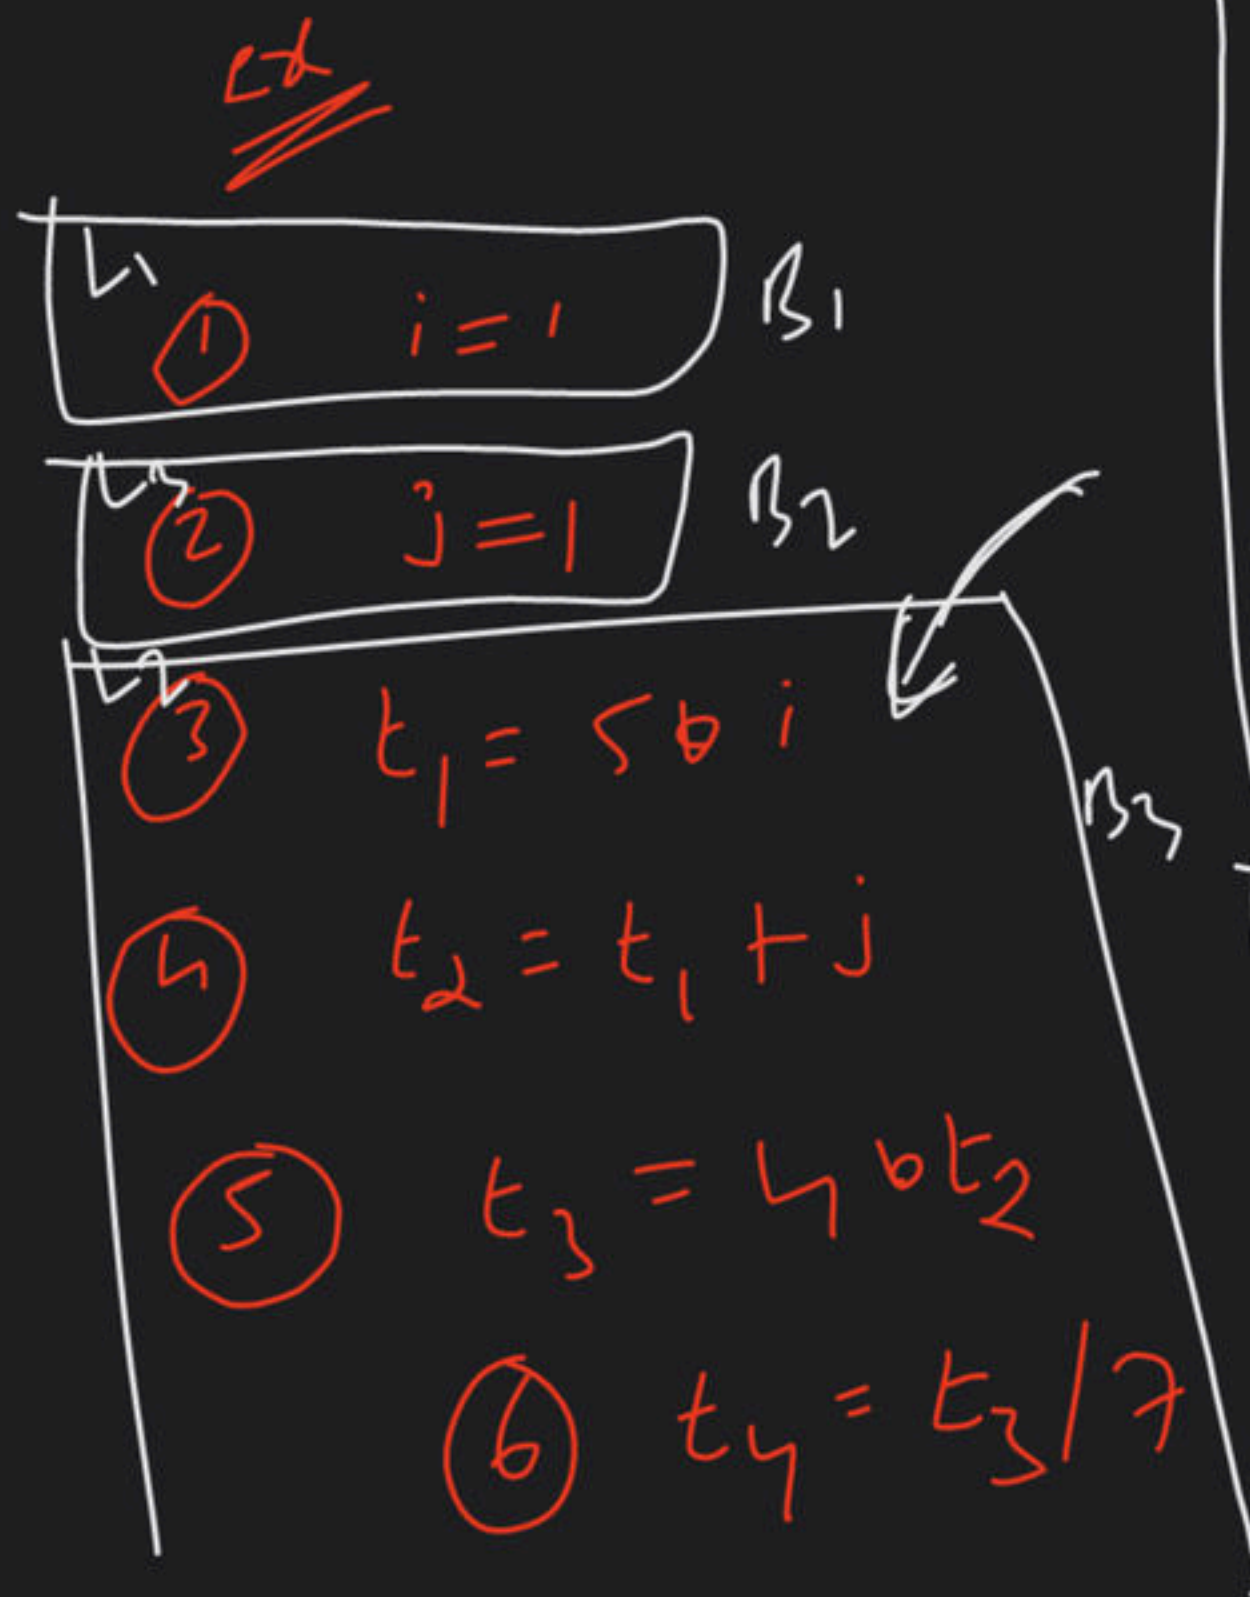 Ex
L1
① i = 1 B1
L3
② j = 1 B2
L2
③ t1 = 5 * i
B3
④ t2 = t1 + j
⑤ t3 = 4 * t2
⑥ t4 = t3 / 7